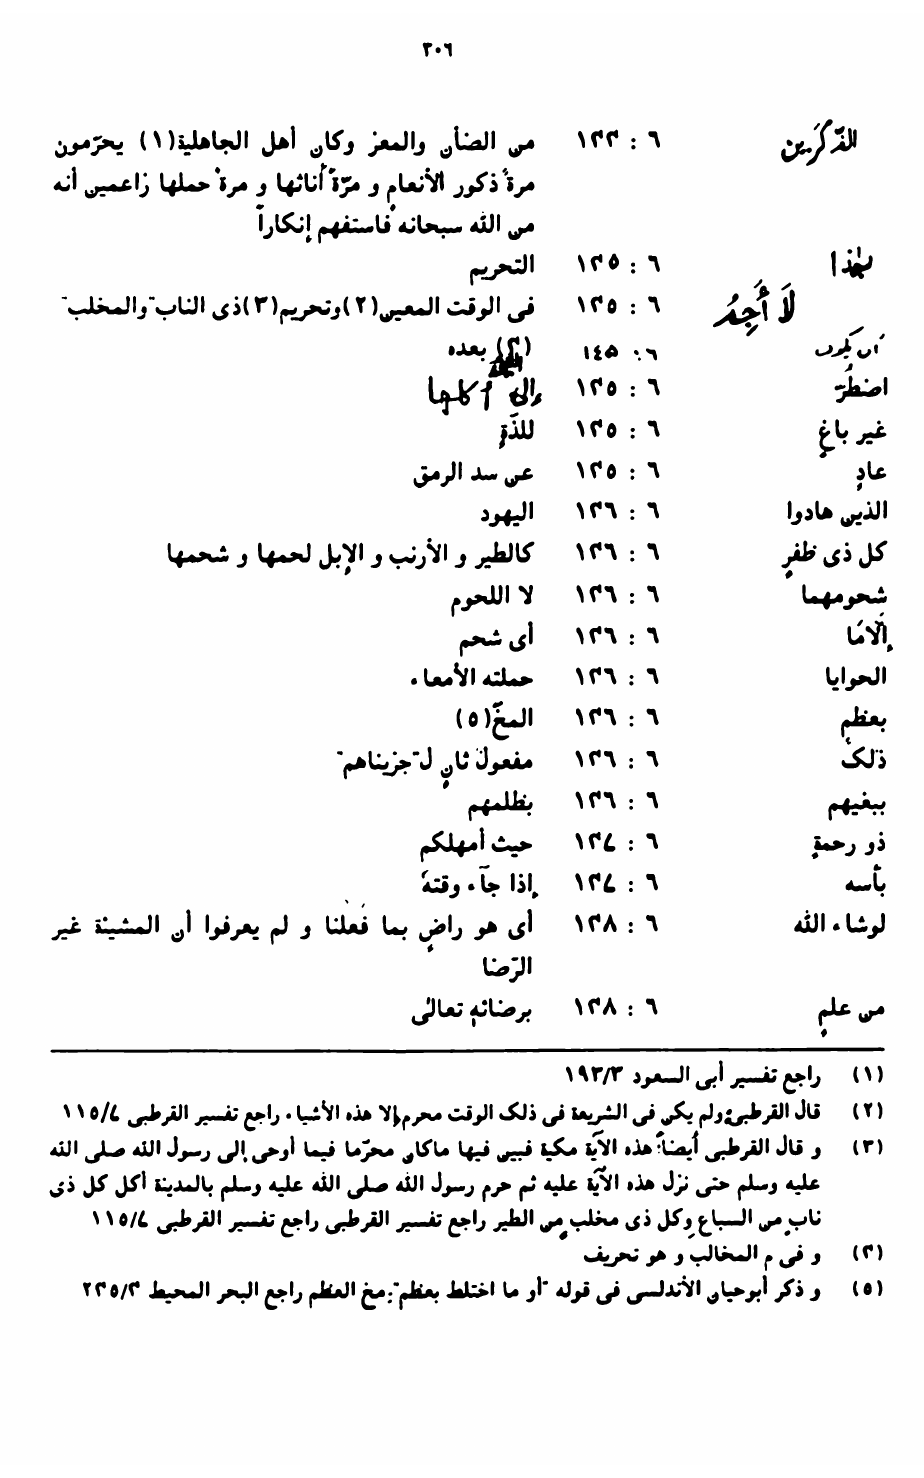 ٢٠٦
الذّكَرَين ٦ : ١٤٣ من الضأن والمعز وكان أهل الجاهلية(١) يحرّمون
مرة ذكور الأنعام و مرّة أناثها و مرة حملها زاعمين أنه
من الله سبحانه فاستفهم إنكاراً
بهٰذا ٦ : ١٤٥ التحريم
لَا أَجِدُ ٦ : ١٤٥ فى الوقت المعين(٢)وتحريم(٣)ذى الناب والمخلب
ان يكون ٦ : ١٤٥ (٤) بعده
اضطُرّ ٦ : ١٤٥ إلى أكلها
غير باغٍ ٦ : ١٤٥ للذّةٍ
عادٍ ٦ : ١٤٥ عن سد الرمق
الذين هادوا ٦ : ١٤٦ اليهود
كل ذى ظفرٍ ٦ : ١٤٦ كالطير و الأرنب و الإبل لحمها و شحمها
شحومهما ٦ : ١٤٦ لا اللحوم
إلّامَا ٦ : ١٤٦ أى شحم
الحوايا ٦ : ١٤٦ حملته الأمعاء
بعظم ٦ : ١٤٦ المخّ(٥)
ذٰلك ٦ : ١٤٦ مفعول ثانٍ ل"جزيناهم"
ببغيهم ٦ : ١٤٦ بظلمهم
ذو رحمةٍ ٦ : ١٤٧ حيث أمهلكم
بأسه ٦ : ١٤٧ إذا جآء وقتهٗ
لوشاء الله ٦ : ١٤٨ أى هو راضٍ بما فعلنا و لم يعرفوا أن المشيئة غير
الرّضا
من علمٍ ٦ : ١٤٨ برضائهٖ تعالىٰ
(١) راجع تفسير أبى السعود ١٩٣/٣
(٢) قال القرطبى:ولم يكن فى الشريعة فى ذلك الوقت محرم إلا هذه الأشياء راجع تفسير القرطبى ١١٥/٧
(٣) و قال القرطبى أيضاً:هذه الآية مكية فبين فيها ماكان محرّما فيما أوحى إلى رسول الله صلى الله
عليه وسلم حتى نزل هذه الآية عليه ثم حرم رسول الله صلى الله عليه وسلم بالمدينة أكل كل ذى
ناب من السباع وكل ذى مخلب من الطير راجع تفسير القرطبى راجع تفسير القرطبى ١١٥/٧
(٤) و فى م المخالب و هو تحريف
(٥) و ذكر أبوحيان الأندلسى فى قوله "أو ما اختلط بعظم":مخ العظم راجع البحر المحيط ٢٤٥/٤